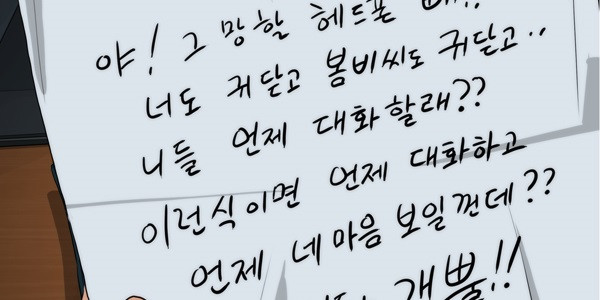 야! 그 망할 헤드폰 빼!!
너도 귀 닫고 봄비씨도 귀닫고..
니들 언제 대화할래??
이런식이면 언제 대화하고
언제 네마음 보일껀데??
개뿔!!